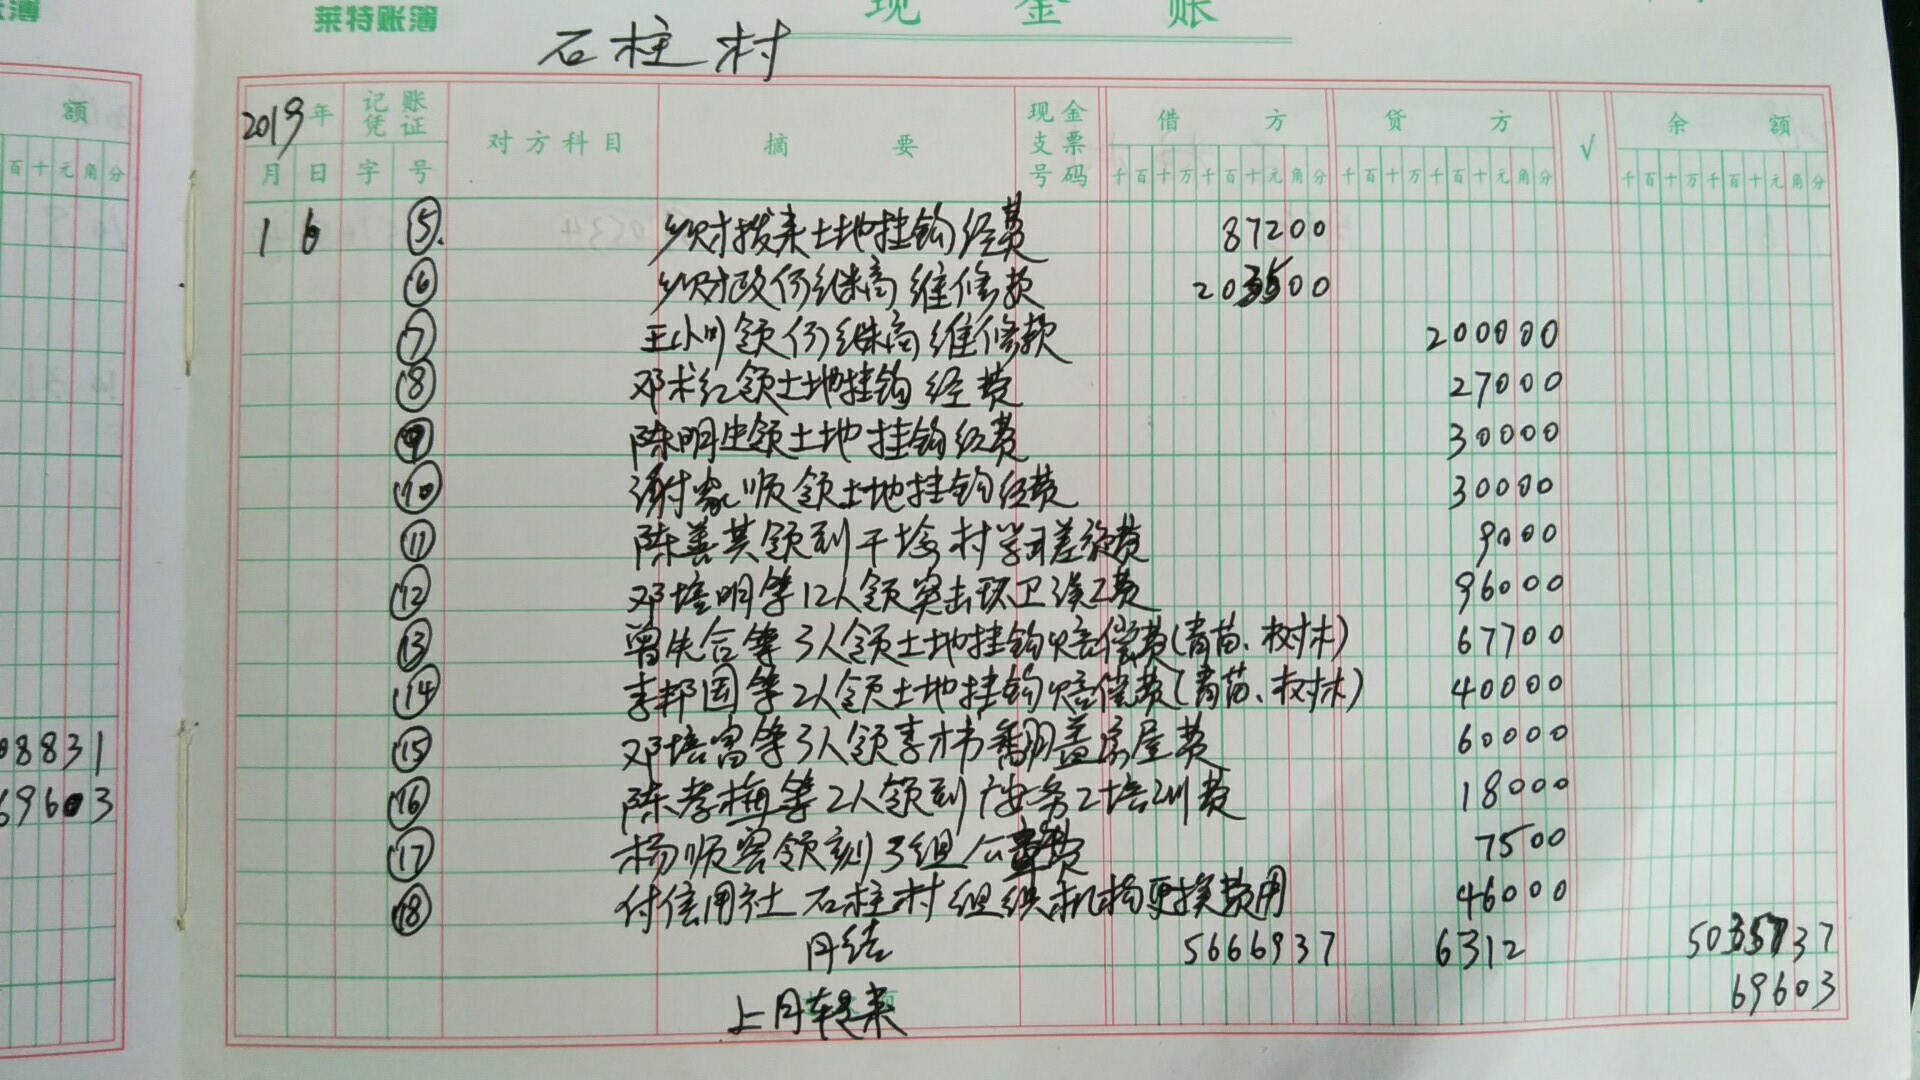 莱特账簿
现金账
石柱村
额
2019年 记账凭证 对方科目 摘要 现金支票号码 借方 贷方 √ 余额
百十元角分
月 日 字 号 千百十万千百十元角分 千百十万千百十元角分 千百十万千百十元角分
1 6 ⑤ 乡财拨来土地挂钩经费 87200
⑥ 乡财政何继商维修款 203500
⑦ 王小川领何继商维修款 200000
⑧ 邓术红领土地挂钩经费 27000
⑨ 陈明生领土地挂钩经费 30000
⑩ 谢家顺领土地挂钩经费 30000
⑪ 陈善其领到干塆村学习差旅费 9000
⑫ 邓培明等12人领突击环卫误工费 96000
⑬ 曾先合等3人领土地挂钩赔偿费(青苗、树木) 67700
⑭ 李邦国等2人领土地挂钩赔偿费(青苗、树木) 40000
⑮ 邓培富等3人领李术书翻盖房屋费 60000
08831
⑯ 陈孝梅等2人领到务工培训费 18000
69603
⑰ 杨顺容领到3组公费 7500
⑱ 付信用社石柱村组织机构更换费用 46000
月结 5666937 6312 5035737
上月转来 69603